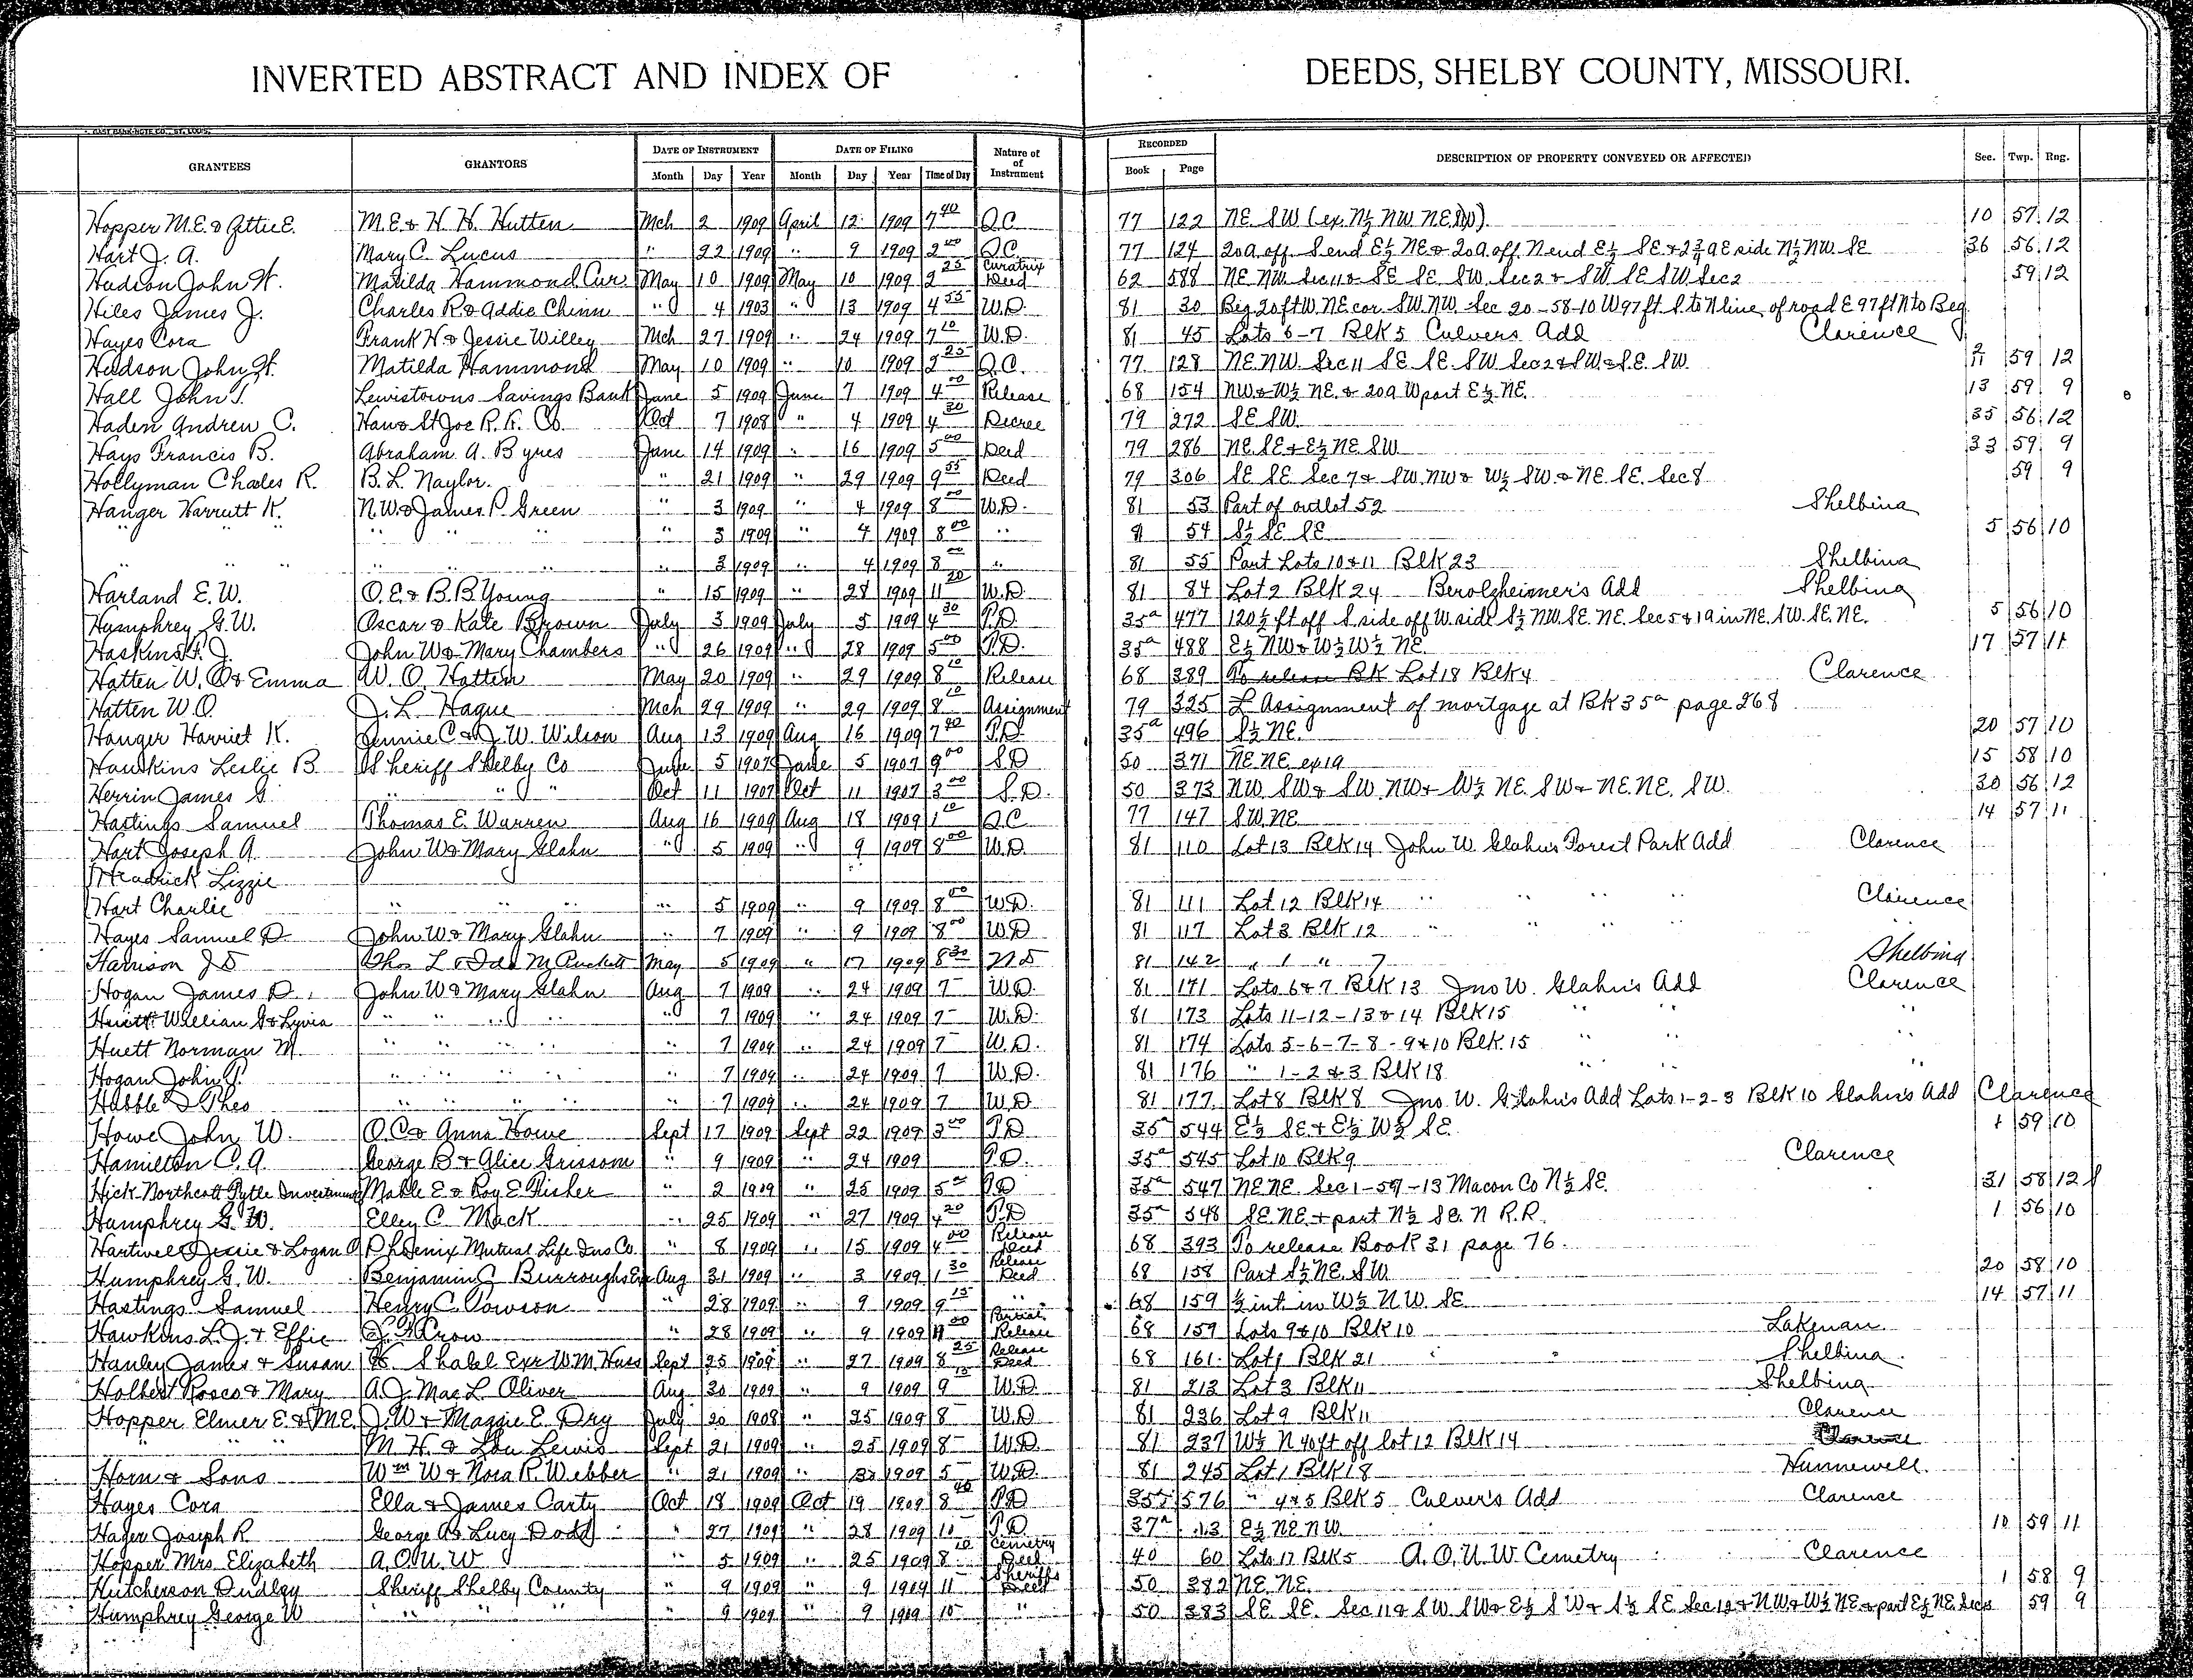 INVERTED ABSTRACT AND INDEX OF DEEDS, SHELBY COUNTY, MISSOURI.
GRANTEES GRANTORS DATE OF INSTRUMENT DATE OF FILING Nature of of Instrument RECORDED DESCRIPTION OF PROPERTY CONVEYED OR AFFECTED Sec. Twp. Rng.
Month Day Year Month Day Year Time of Day Book Page
Hopper M.E. & Ottie E. M.E & H. H. Hutten Mch 2 1909 April 12 1909 7 40 Q.C. 77 122 NE SW (ex. N½ NW N.E. SW). 10 57 12
Hart J. A. Mary C. Lucus " 22 1909 " 9 1909 2 00 Q.C. 77 124 20a. off S end E½ NE & 20a. off N end E½ SE & 2¾ a E side N½ NW. SE 36 56 12
Hudson John H. Matilda Hammond Cur. May 10 1909 May 10 1909 2 25 Curatrix Deed 62 588 NE NW Sec 11 & SE SE SW Sec 2 & SW SE SW Sec 2 59 12
Hiles James J. Charles R. & Addie Chinn " 4 1903 " 13 1909 4 55 W.D. 81 30 Beg 20 ft W. NE cor SW. NW Sec 20-58-10 W 97 ft S to N line of road E 97 ft N to Beg
Hayes Cora Frank H & Jessie Willey Mch 27 1909 " 24 1909 7 10 W.D. 81 45 Lots 6-7 Blk 5 Culvers Add Clarence
Hudson John H. Matilda Hammond May 10 1909 " 10 1909 2 25 Q.C. 77 128 NE. NW. Sec 11 SE SE. SW Sec 2 & SW & S.E. SW. 2 11 59 12
Hall John T. Lewistowns Savings Bank June 5 1909 June 7 1909 4 00 Release 68 154 NW & W½ NE. & 20a W part E½ NE. 13 59 9
Haden Andrew C. Han & St Joe R. R. Co. Oct 7 1908 " 4 1909 4 30 Decree 79 272 SE SW. 35 56 12
Hays Francis B. Abraham A. Byres June 14 1909 " 16 1909 5 00 Deed 79 286 NE. SE & E½ NE SW 33 59 9
Hollyman Charles R. B. L. Naylor. " 21 1909 " 29 1909 9 55 Deed 79 306 SE SE Sec 7 & SW. NW & W½ SW. & NE. SE. Sec 8 59 9
Hanger Harrutt K. N.W. & James P. Green " 3 1909 " 4 1909 8 00 W.D. 81 53 Part of outlot 52 Shelbina
" " " " " " " 3 1909 " 4 1909 8 00 " 81 54 S½ SE SE 5 56 10
" " " " " " 3 1909 " 4 1909 8 00 " 81 55 Part Lots 10 & 11 Blk 23 Shelbina
Harland E. W. O. E. & B. B. Young " 15 1909 " 28 1909 11 20 W.D. 81 84 Lot 2 Blk 24 Berolzheimer's Add Shelbina
Humphrey G. W. Oscar & Kate Brown July 3 1909 July 5 1909 4 30 T.D. 35a 477 120½ ft off S side off W side S½ NW. SE. NE. Sec 5 & 19 in NE. SW. SE. NE. 5 56 10
John W & Mary Chambers " 26 1909 " 28 1909 5 00 T.D. 35a 488 E½ NW & W½ W½ NE 17 57 11
Hatten W. O & Emma W. O. Hatten May 20 1909 " 29 1909 8 10 Release 68 389 To release BK Lot 18 Blk 4 Clarence
Hatten W.O. J. L. Hague Mch 29 1909 " 29 1909 8 10 Assignment 79 325 L Assignment of mortgage at BK 35a page 268
Hanger Harriet K. Jennie C & J. W. Wilson Aug 13 1909 Aug 16 1909 7 40 T.D. 35a 496 S½ NE. 20 57 10
Hawkins Leslie B. Sheriff Shelby Co June 5 1907 June 5 1907 9 00 S.D 50 371 NE NE. ex 19 15 58 10
Herrin James G. " " " Oct 11 1907 Oct 11 1907 3 00 S.D. 50 373 NW SW & SW NW & W½ NE. SW & NE. NE. SW. 30 56 12
Hastings Samuel Thomas E. Warren Aug 16 1909 Aug 18 1909 1 10 Q.C 77 147 SW. NE 14 57 11
Hart Joseph A. John W & Mary Glahn " 5 1909 " 9 1909 8 00 W.D. 81 110 Lot 13 Blk 14 John W. Glahn's Forest Park Add Clarence
Headrick Lizzie
Hart Charlie " " " " 5 1909 " 9 1909 8 00 W.D. 81 111 Lot 12 Blk 14 " " " Clarence
Hayes Samuel D. John W & Mary Glahn " 7 1909 " 9 1909 8 00 W.D 81 117 Lot 3 Blk 12 " " "
Harrison J D Thos L & Ida M Puckett May 5 1909 " 17 1909 8 30 W D 81 142 " 1 " 7 Shelbina
Hogan James D. John W & Mary Glahn Aug 7 1909 " 24 1909 7 W.D. 81 171 Lots 6 & 7 Blk 13 Jno W. Glahn's Add Clarence
Huett William G & Lyvia " " " " 7 1909 " 24 1909 7 W.D. 81 173 Lots 11-12-13 & 14 Blk 15 " " "
Huett Norman M. " " " " 7 1909 " 24 1909 7 W.D. 81 174 Lots 5-6-7-8-9 & 10 Blk. 15 " "
Hogan John T. " " " " 7 1909 " 24 1909 7 W.D. 81 176 " 1-2 & 3 Blk 18 " " "
Theo " " " " 7 1909 " 24 1909 7 W.D 81 177 Lot 8 Blk 8 Jno. W. Glahn's Add Lots 1-2-3 Blk 10 Glahn's Add Clarence
Howe John W. O.C & Anna Howe Sept 17 1909 Sept 22 1909 3 00 T.D 35a 544 E½ SE & E½ W½ SE. 1 59 10
Hamilton C. A. George B & Alice Grissom " 9 1909 " 24 1909 T.D. 35a 545 Lot 10 Blk 9 Clarence
Hick Northcott Pytle Investment Mable E & Roy E Fisher " 2 1909 " 25 1909 5 00 T.D 35a 547 NE NE. Sec 1-59-13 Macon Co N½ SE. 31 58 12
Humphrey G. W. Elley C. Mack " 25 1909 " 27 1909 4 20 T.D 35a 548 SE. NE. & part N½ SE. N R.R. 1 56 10
Hartwell Jessie & Logan O Phoenix Mutual Life Ins Co. " 8 1909 " 15 1909 4 00 Release Deed 68 393 To release Book 31 page 76.
Humphrey G. W. Benjamin G Burroughs Exr Aug 31 1909 " 3 1909 1 30 Release Deed 68 158 Part S½ NE. SW 20 58 10
Hastings Samuel Henry C. Dowson " 28 1909 " 9 1909 9 15 " 68 159 ½ int. in W½ N.W. SE 14 57 11
Hawkins L. J. & Effie Crow " 28 1909 " 9 1909 00 Partial Release 68 159 Lots 9 & 10 Blk 10 Lakenan
Hanley James & Susan K. Shabel Exr W.M. Huss Sept 25 1909 " 27 1909 8 25 Release Deed 68 161 Lot 1 Blk 21 Shelbina
Holbert Rosco & Mary A.J. Mac L. Oliver Aug 30 1909 " 9 1909 9 15 W.D. 81 213 Lot 3 Blk 11 Shelbina
Hopper Elmer E. & M.E. J.W & Maggie E. Dry July 20 1908 " 25 1909 8 W.D 81 236 Lot 9 Blk 11 Clarence
" " " M. H. & Lou Lewis Sept 21 1909 " 25 1909 8 W.D. 81 237 W½ N 40 ft off lot 12 Blk 14 Clarence
Horn & Sons Wm W & Nora R. Webber " 21 1909 " 1909 5 W.D. 81 245 Lot 1 Blk 18 Hunnewell
Hayes Cora Ella & James Carty Oct 18 1909 Oct 19 1909 8 40 T.D 576 " 4 & 5 Blk 5 Culver's Add Clarence
Hager Joseph R George A & Lucy Dodd " 27 1909 " 28 1909 10 T.D. 37a 13 E½ NE NW. 10 59 11
Hopper Mrs. Elizabeth A.O.U.W " 5 1909 " 25 1909 8 10 Cemetry Deed 40 60 Lots 17 Blk 5 A.O.U.W. Cemetry Clarence
Hutcherson Dudley Sheriff Shelby County " 9 1909 " 9 1909 11 Sheriffs Deed 50 382 NE. NE. 1 58 9
Humphrey George W " " " " 9 1909 " 9 1909 10 " 50 383 SE SE. Sec 11 & SW SW & E½ SW & S½ SE Sec 12 & NW & W½ NE & part E½ NE. Sec 59 9